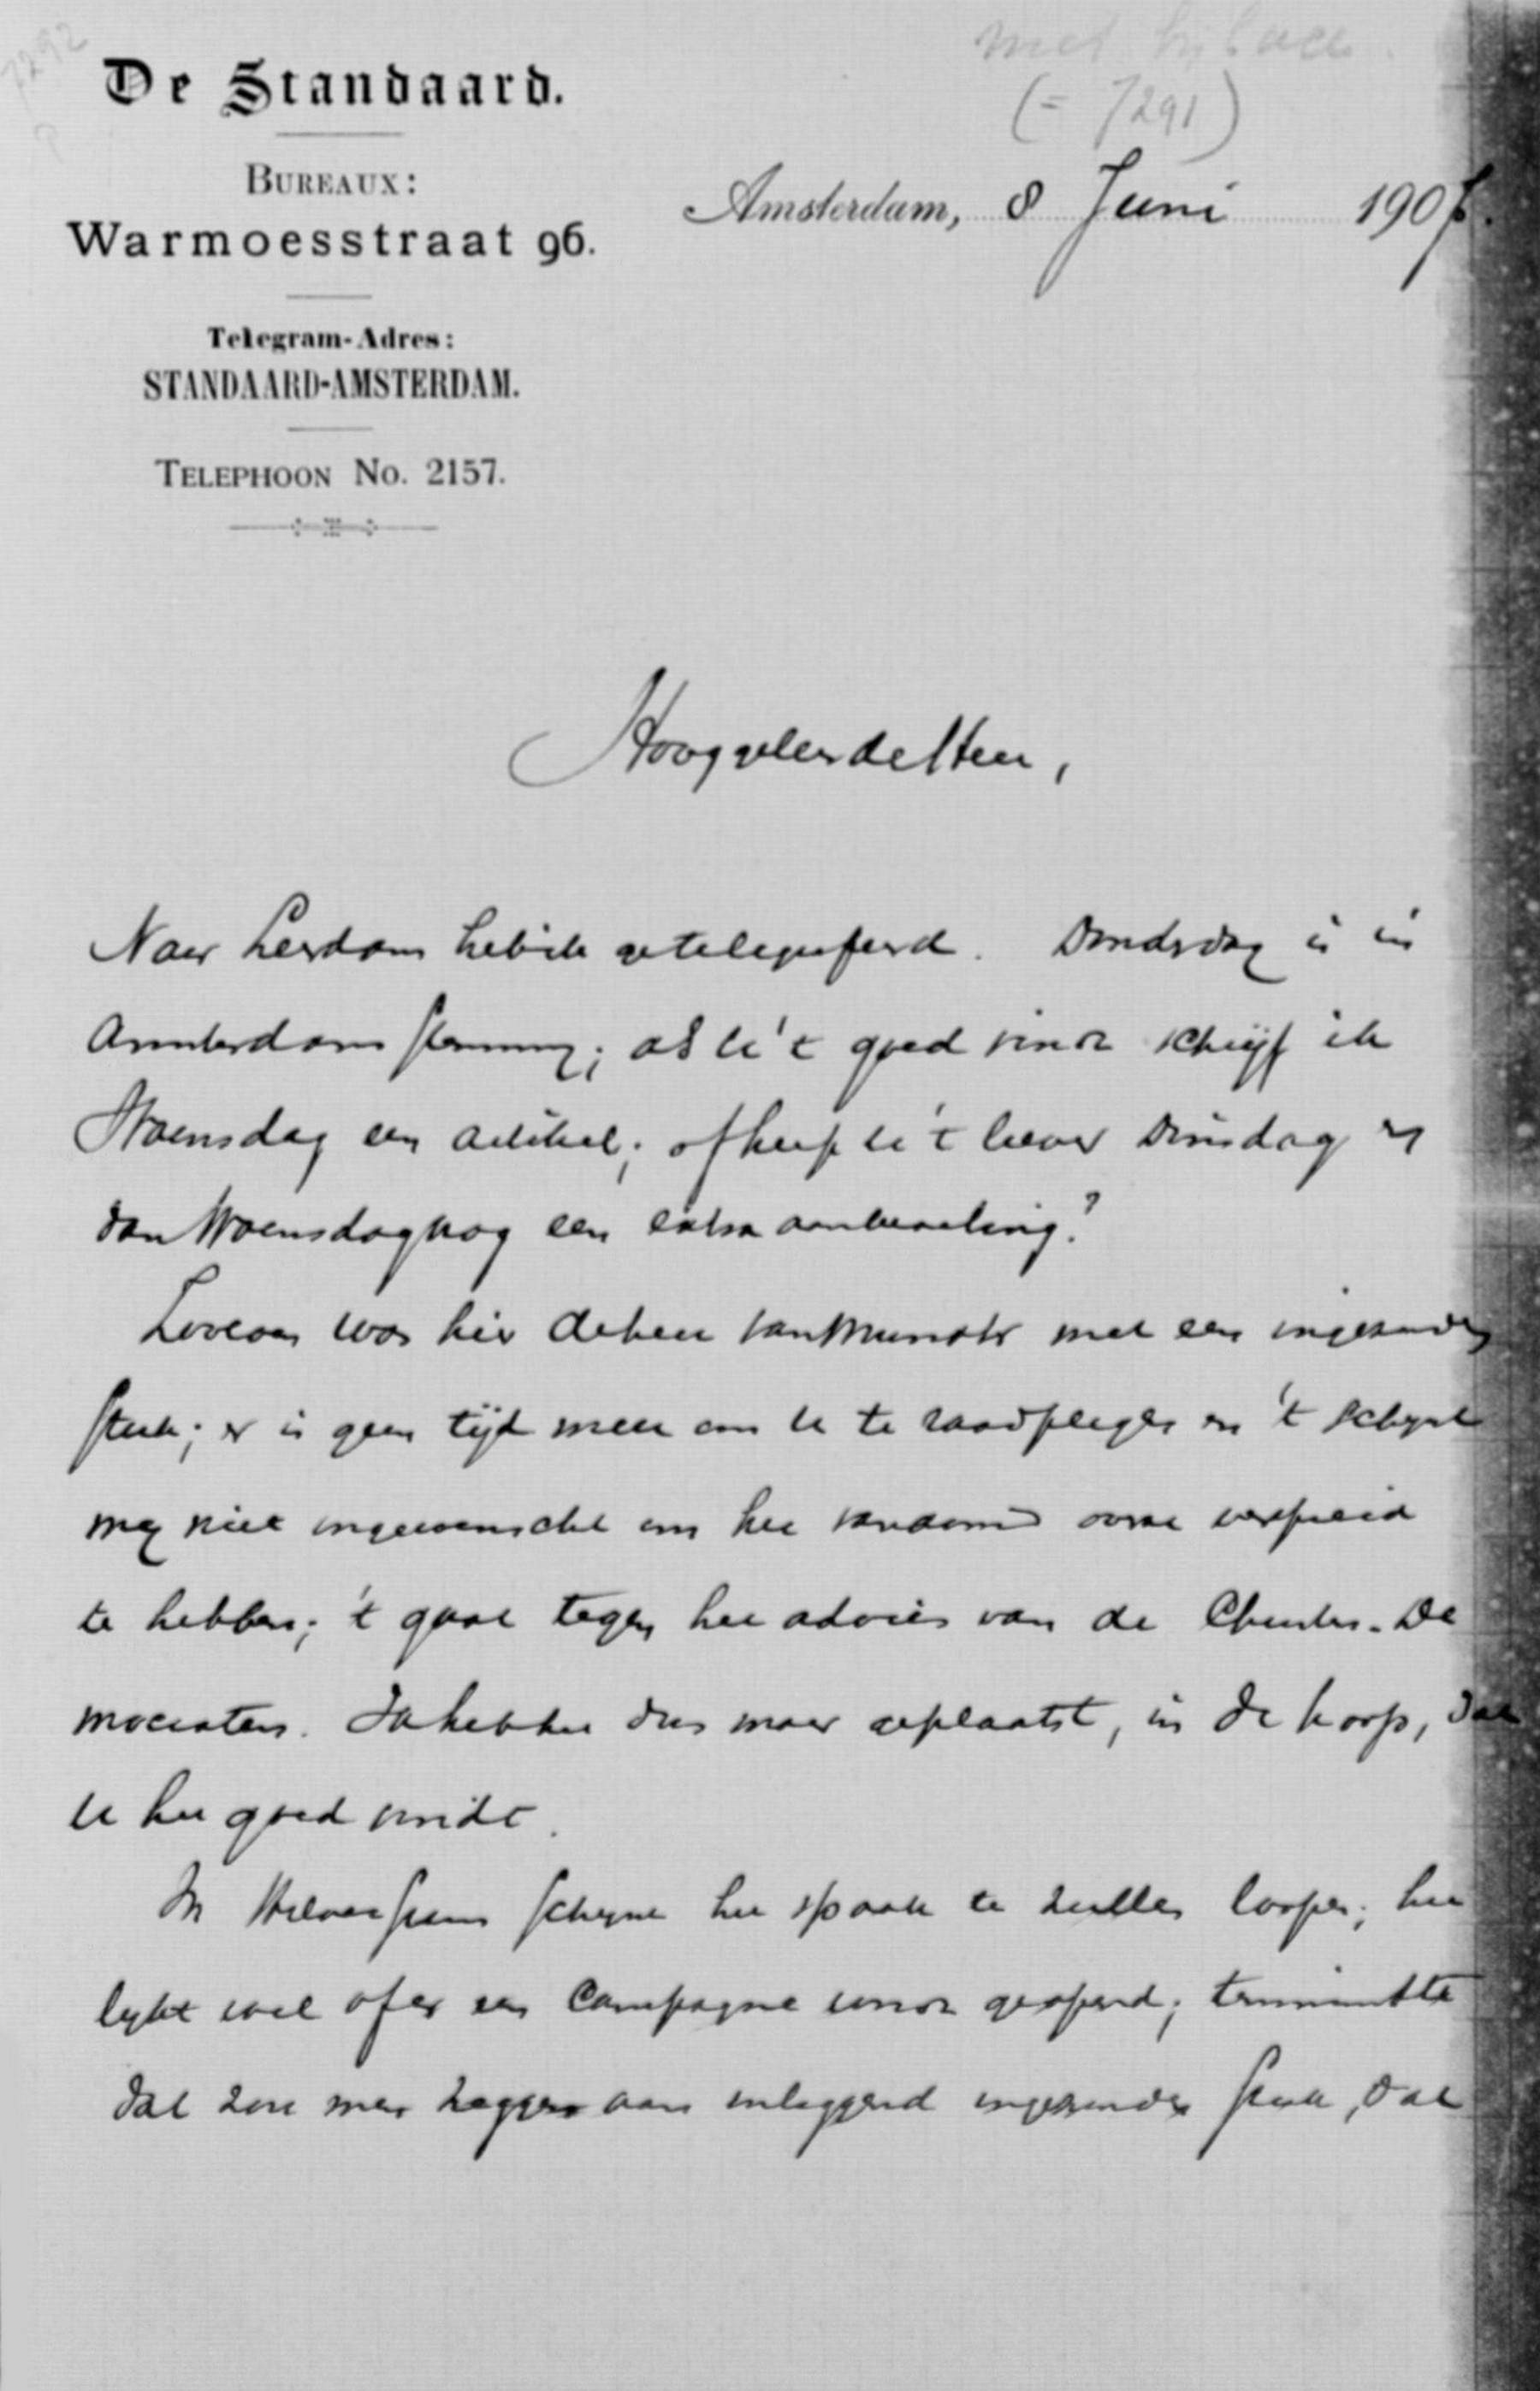 7292
met bijlage.
(= 7291)
De Standaard.
BUREAUX:
Warmoesstraat 96.
Amsterdam, 8 Juni 1907.
Telegram-Adres:
STANDAARD-AMSTERDAM.
TELEPHOON No. 2157.
Hooggeleerde Heer,
Naar Leerdam heb ik getelegrafeerd. Donderdag is in
Amsterdam stemming; als U 't goed vindt schrijf ik
Woensdag een artikel; of heeft U 't liever Dinsdag en
dan Woensdag nog een extra aanbeveling?
Zooeven was hier de heer van Munster met een ingezonden
stuk; er is geen tijd meer om U te raadplegen en 't schijnt
mij niet ongewenscht om het vandaag verspreid
te hebben; 't gaat tegen het advies van de Christen-De
mocraten. Ik heb het dus maar geplaatst, in de hoop, dat
U het goed vindt.
In Hilversum schijnt het spaak te zullen loopen; het
lijkt wel of er een campagne wordt geopend; tenminste
dat zou men zeggen aan inliggend ingezonden stuk, dat